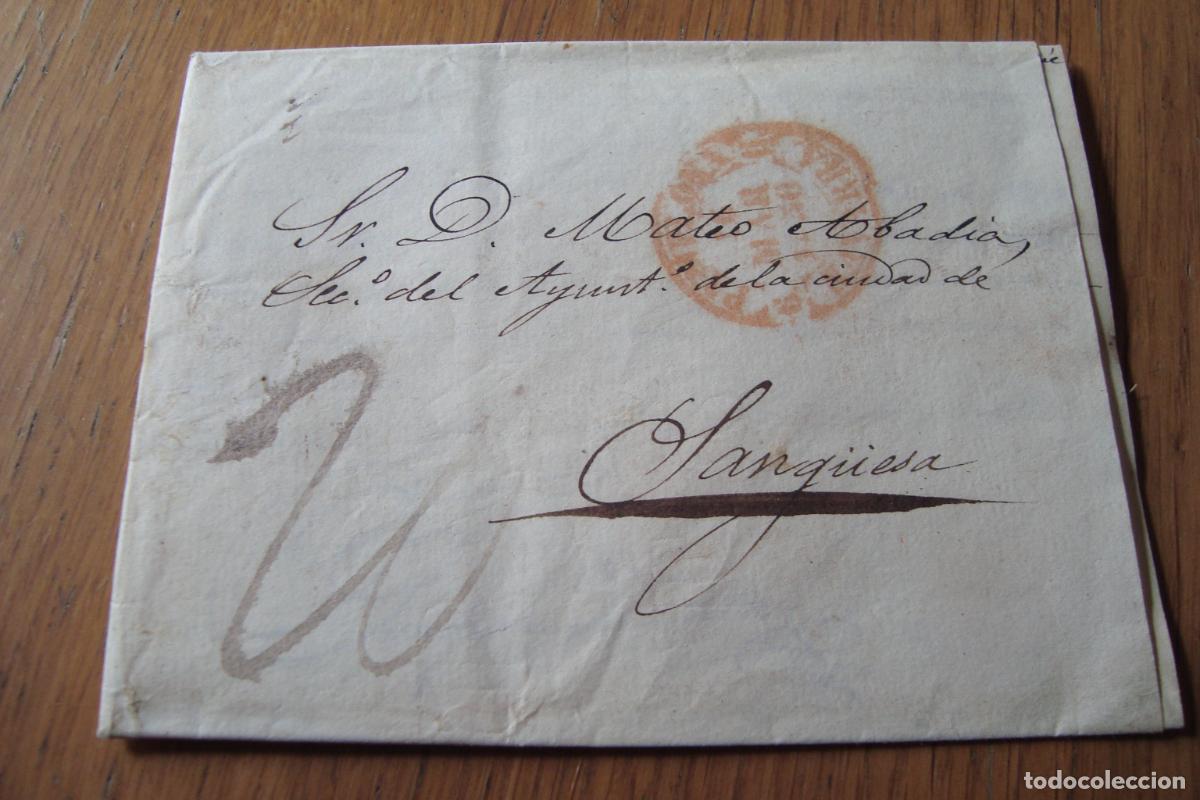 Sr. D. Mateo Abadia,
Sec.º del Ayunt.º de la ciudad de
Sangüesa
todocoleccion